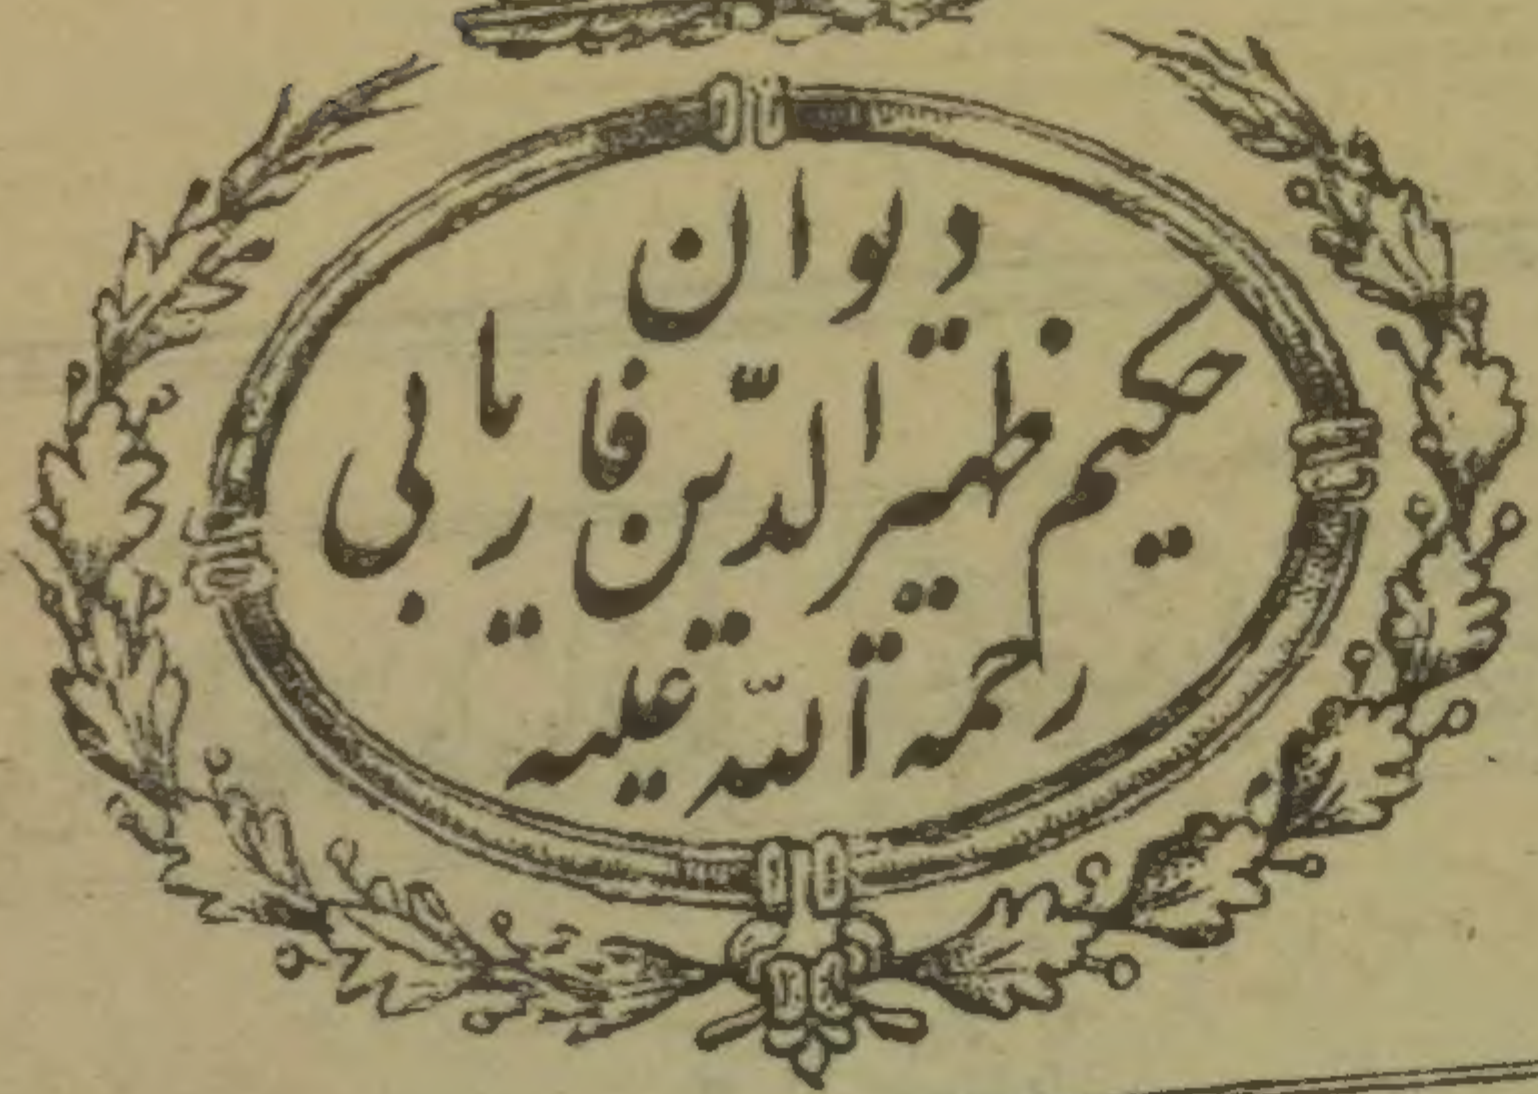 دیوان
حکیم ظهیر الدّین فاریابی
رحمه الله علیه